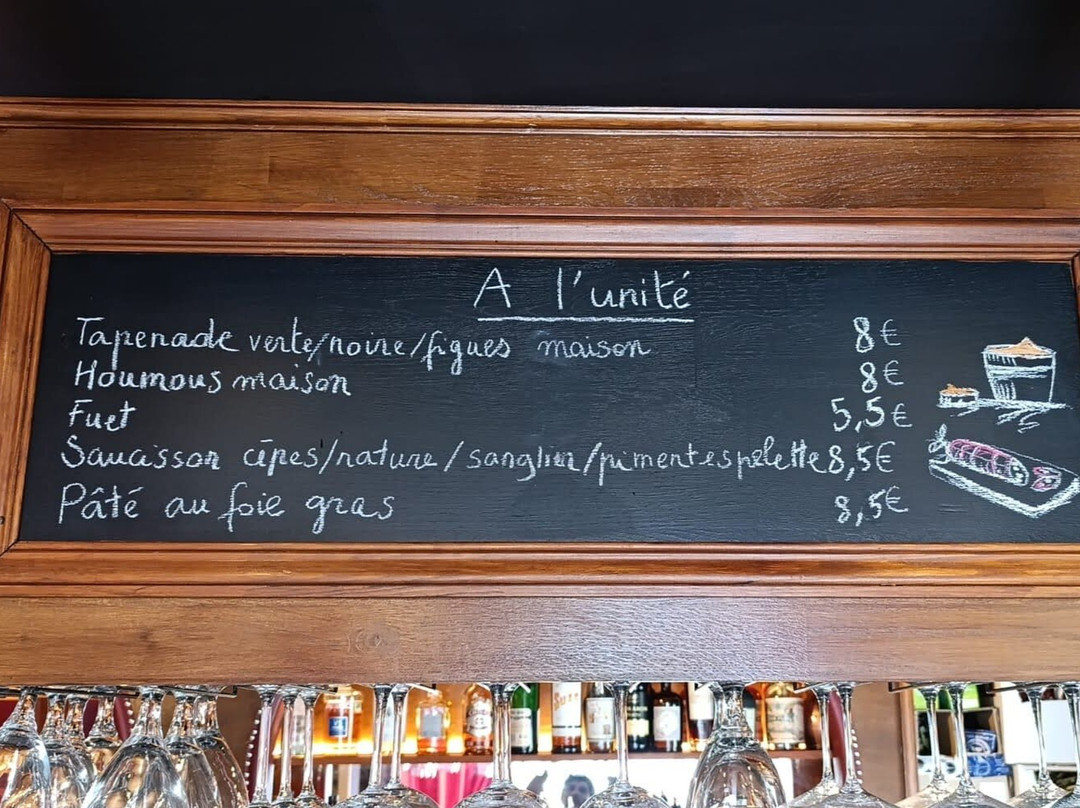 A l'unité
Tapenade verte/noire/figues maison 8€
Houmous maison 8€
Fuet 5,5€
Saucisson cèpes/nature/sanglier/piment espelette 8,5€
Pâté au foie gras 8,5€